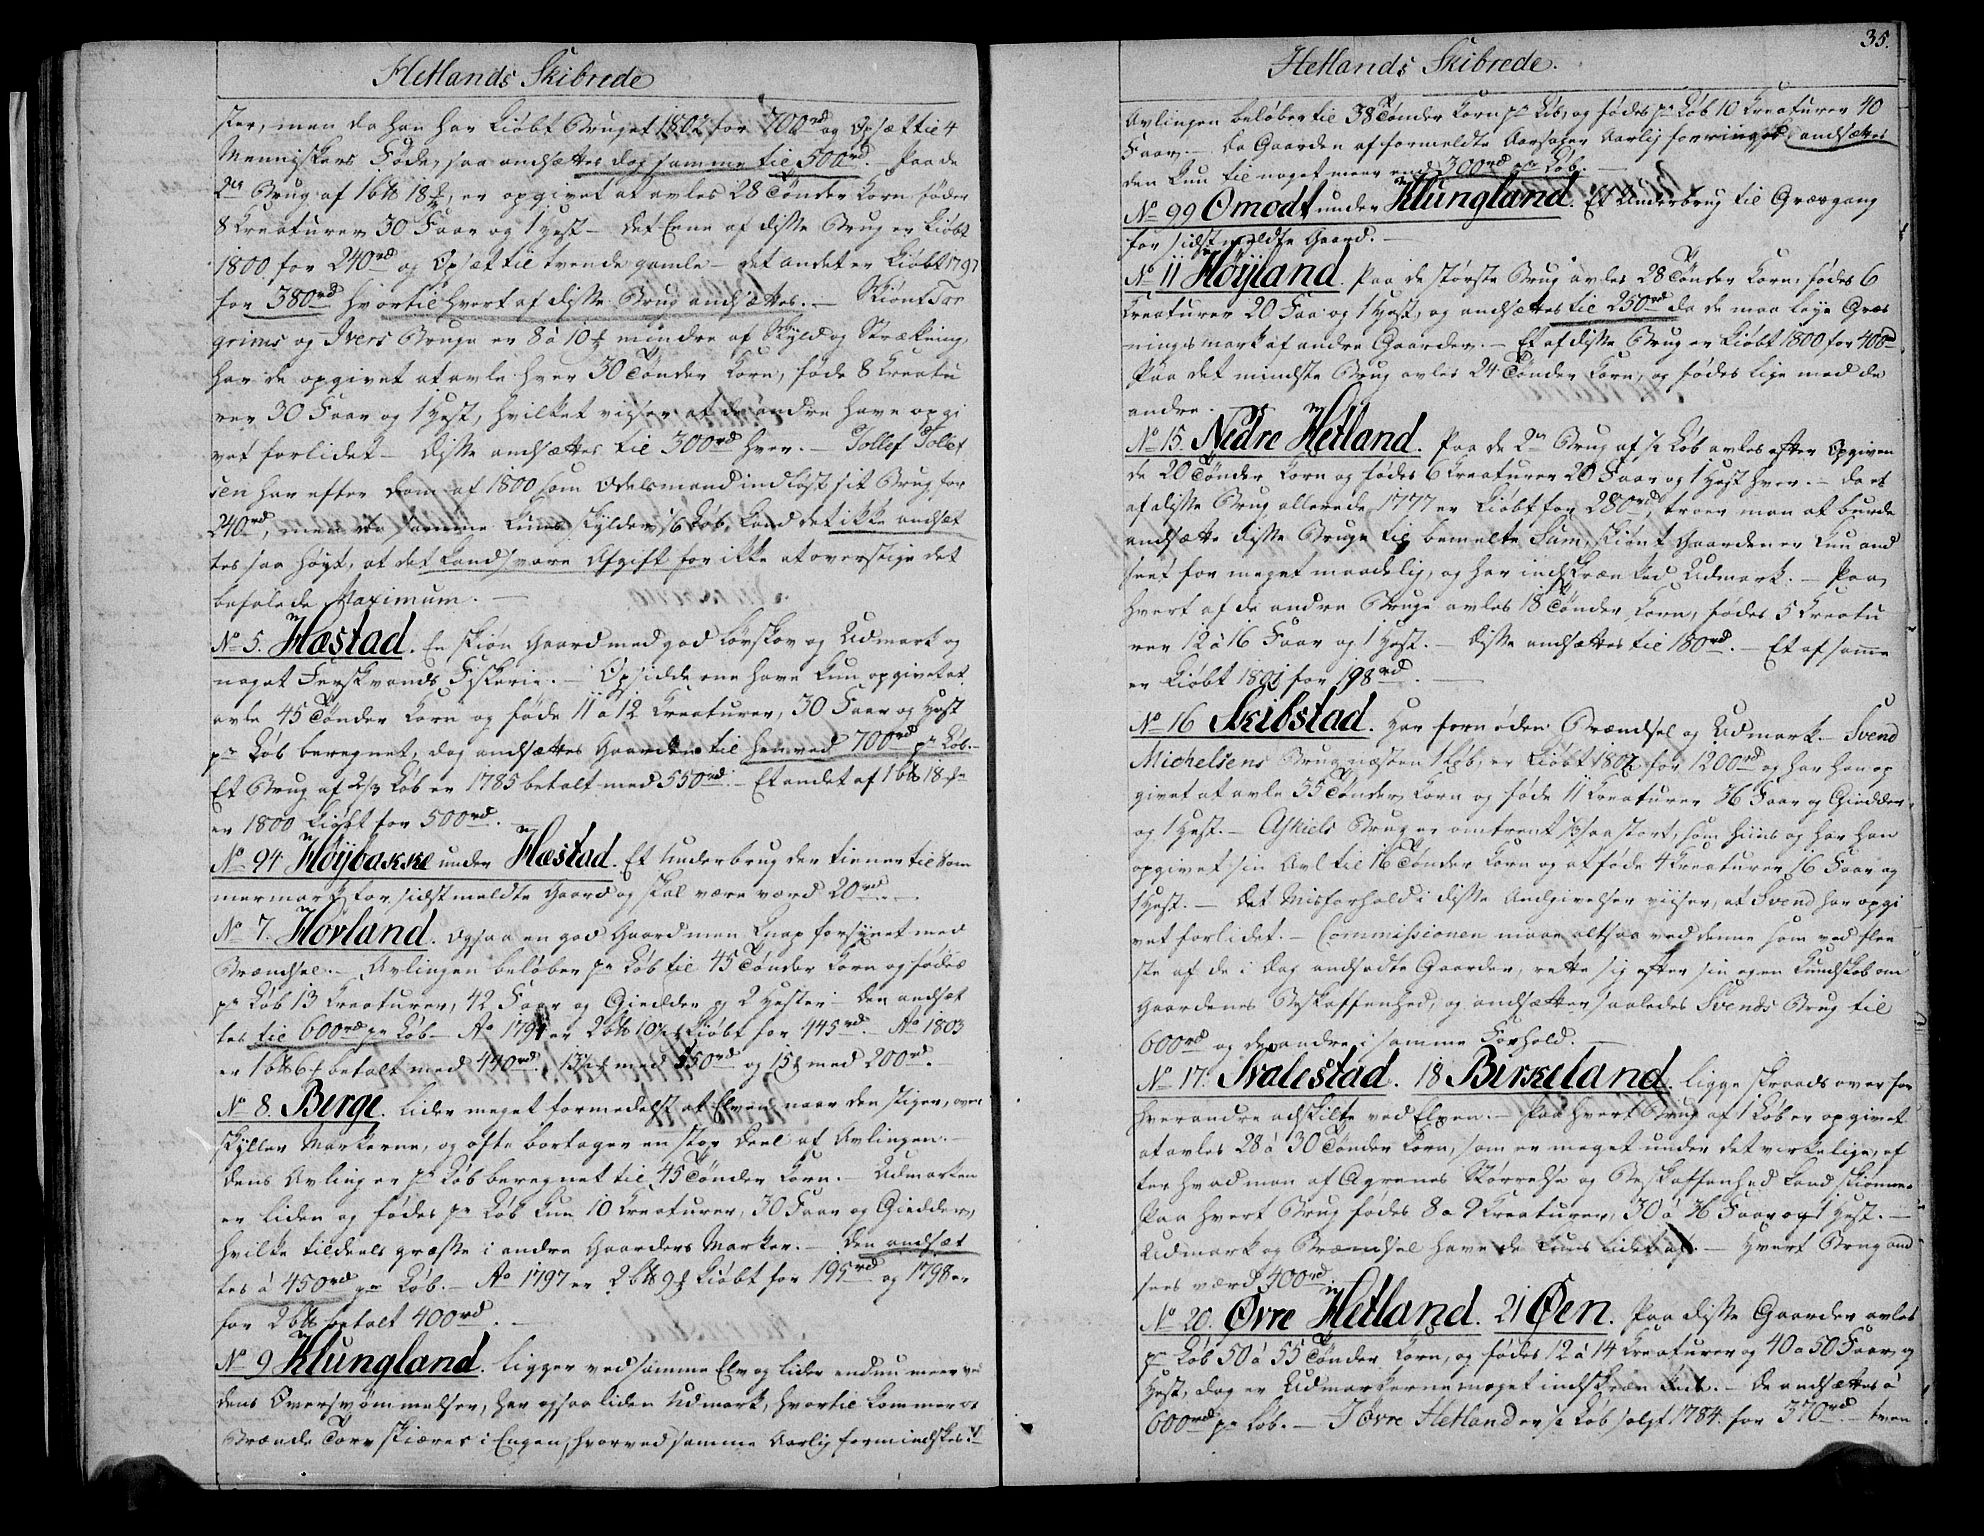 Hetlands Skibrede
ster, men da han har kiøbt Bruget 1802 for 700rd og Opsæt til 4
Menniskers Føde, saa andsættes dog samme til 500rd. Paa de
2de Brug af 1 b℔ 18, er opgivet at avles 28 Tønder Korn, føder
8 Kreaturer, 30 Faar og 1 Hest – det Eene af disse Brug er kiøbt
1800 for 240rd og Opsæt til tvende gamle – det andet er kiøbt 1797
for 380rd hvortil hvert af disse Brug andsættes. – Skiønt Tor
grims og Ivers Bruge er 8 a 10 mindre af Skyld og Strækning,
har de opgivet at avle hver 30 Tønder Korn, føde 8 Kreatu
rer 30 Faar og 1 Hest, hvilket viiser at de andre have opgi
vet forlidet – Disse andsættes til 300rd hver. – Tollef Tollef
sen har efter Dom af 1800 som Odelsmand indløst sit Brug for
240rd, men da samme kuns skylder 1/6 Løb, kand det ikke andsæt
tes saa høyt, at det kand svare Afgift for ikke at overstige det
befalede Maximum. –
No 5. Hæstad. En skiøn Gaard med god Løvskov og Udmark og
noget Ferskvands Fiskerie. – Opsidderne have kun opgivet at
avle 45 Tønder Korn og føde 11 a 12 Kreaturer, 30 Faar og Hest
pr Løb beregnet, dog andsættes Gaarden til henved 700rd pr Løb. –
Et Brug af 2/3 Løb er 1785 betalt med 550rd. – Et andet af 1 b℔ 18
er 1800 kiøbt for 500rd.
No 94 Høybakke under Hæstad. Et Underbrug der tiener til Som
mermark for sidstmeldte Gaard og skal være værd 20rd. –
No 7. Hörland. Ogsaa en god Gaard men knap forsynet med
Brændsel. – Avlingen beløber pr Løb til 45 Tønder Korn og fødes
pr Løb 13 Kreaturer, 42 Faar og Giedder og 2 Hester – Den andsæt
tes til 600rd pr Løb – Ao 1794 er 2 b℔ 10 kiøbt for 445rd – Ao 1803
er 1 b℔ 6 betalt med 440rd. 13½ med 350rd og 15 med 200rd.
No 8. Berge. Lider meget formedelst at Elven, naar den stiger, over
skyller Markerne, og ofte borttager en stor Deel af Avlingen. –
Dens Avling er pr Løb beregnet til 45 Tønder Korn. – Udmarken
er liden og fødes pr Løb kun 10 Kreaturer, 30 Faar og Giedder,
hvilke tildeels græsse i andre Gaarders Marker. – Den andsæt
tes á 450rd pr Løb. – Ao 1797 er 2 b℔ 9 kiøbt for 195rd og 1798 er
for 2 b℔ betalt 400rd. –
No 9 Klungland. Ligger ved samme Elv og lider endnu meer ved
dens Oversvømmelser, har ogsaa liden Udmark, hvortil kommer at
Brænde Torv skiæres i Engen, hvorved samme Aarlig formindskes.
35.
Hetlands Skibrede.
Avlingen beløber til 38 Tønder Korn pr Løb, og fødes pr Løb 10 Kreaturer 40
Faar. – Da Gaarden af formeldte Aarsager Aarlig forringes, andsættes
den kun til noget meer end 300rd pr Løb. –
No 99 Omodt under Klungland. Et Underbrug til Græsgang
for sidstmeldte Gaard. –
No 11 Höyland. Paa de største Brug avles 28 Tønder Korn, fødes 6
Kreaturer 20 Faar og 1 Hest, og andsættes til 250rd da de maa leye Græs
ningsmark af andre Gaarder. – Et af disse Brug er kiøbt 1800 for 400rd
Paa det mindste Brug avles 24 Tønder Korn, og fødes lige med de
andre.
No 15. Nedre Hetland. Paa de 2de Brug af ½ Løb avles efter Opgiven
de 20 Tønder Korn og fødes 6 Kreaturer 20 Faar og 1 Hest hver. – Da et
af disse Brug allerede 1777 er kiøbt for 280rd, troer man at burde
andsætte disse Bruge til bemelte Sum, skiønt Gaarden er kun and
seet for meget maadelig, og har indskrænked Udmark. – Paa
hvert af de andre Bruge avles 18 Tønder Korn, fødes 5 Kreatu
rer 12 á 16 Faar og 1 Hest. – Disse andsættes til 180rd. – Et af samme
er kiøbt 1801 for 198rd. –
No 16 Skibstad. Har fornøden Brændsel og Udmark. – Svend
Michelsens Brug næsten 1 Løb, er kiøbt 1802 for 1200rd og har han op
givet at avle 35 Tønder Korn og føde 11 Kreaturer 36 Faar og Giedder
og 1 Hest. – Askiels Brug er omtrent 1/3 saa stort, som hiins og har han
opgivet sin Avl til 16 Tønder Korn og at føde 4 Kreaturer, 16 Faar og
1 Hest. – Det Misforhold i disse Andgivelser viiser, at Svend har opgi
vet forlidet. – Commissionen maae altsaa ved denne som ved flee
ste af de i Dag andsadte Gaarder, rette sig efter sin egen Kundskab om
Gaardenes Beskaffenhed, og andsætter saaledes Svends Brug til
600rd og de andre i samme Forhold. –
No 17. Svalestad. 18 Birkeland. Ligge skraads over for
hverandre adskilte ved Elven. – Paa hvert Brug af 1 Løb er opgivet
at avles 28 á 30 Tønder Korn, som er meget under det virkelige, ef
ter hvad man af Agrenes Størrelse og Beskaffenhed kand skiønne.
Paa hvert Brug fødes 8 a 9 Kreaturer, 30 á 36 Faar og 1 Hest. –
Udmark og Brændsel have de kuns lidet af. – Hvert Brug and
sees værd 400rd.
No 20. Øvre Hetland. 21 Øen. Paa disse Gaarder avles
pr Løb 50 á 55 Tønder Korn, og fødes 12 á 14 Kreaturer og 40 a 50 Faar og
Hest, dog er Udmarkerne meget indskrænkede. – De andsættes á
600rd pr Løb. – I Øvre Hetland er ½ Løb solgt 1784 for 370rd. – tven